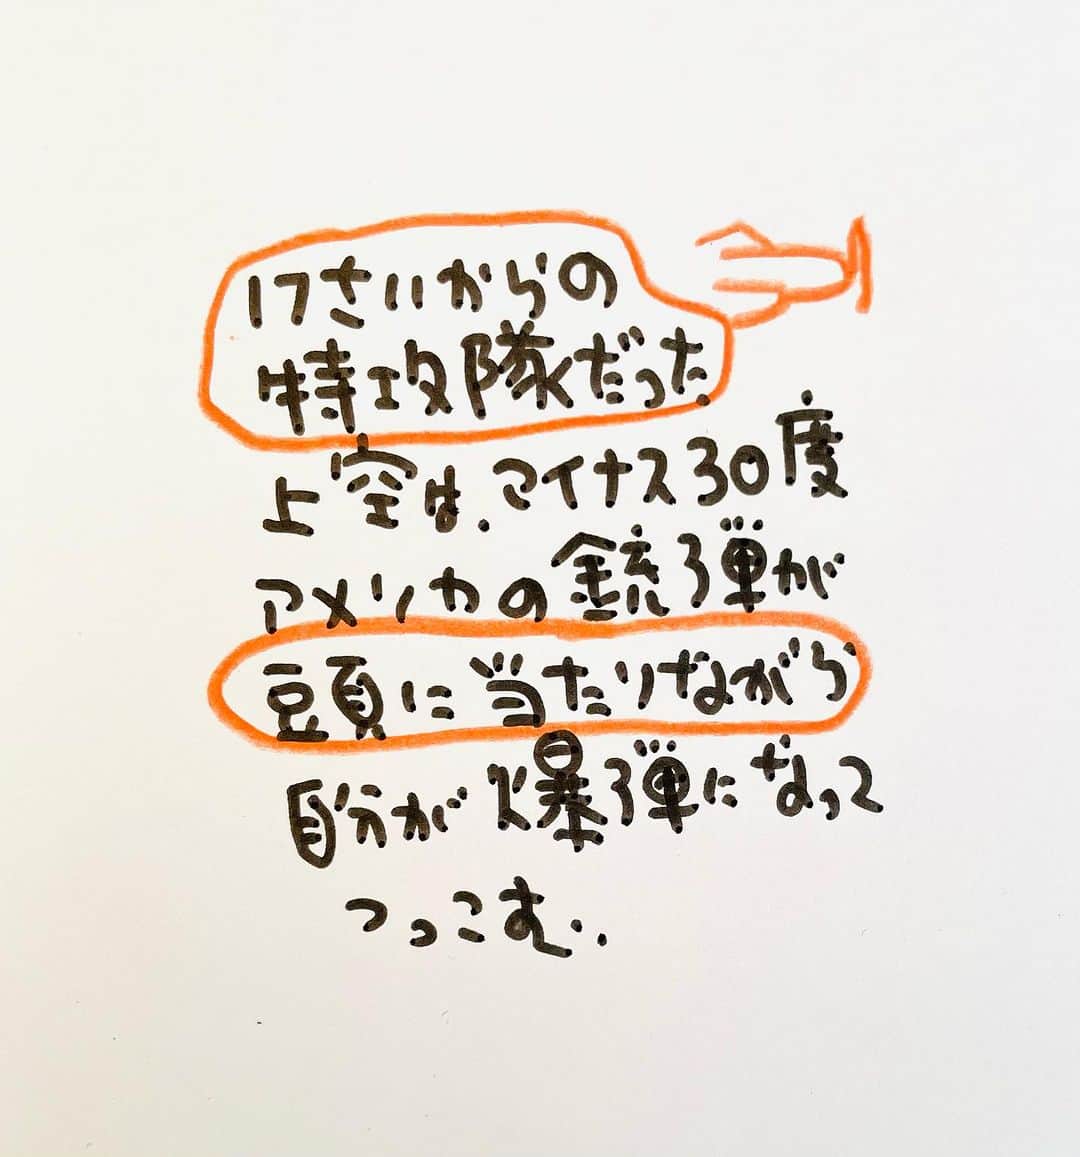 17さいからの
特攻隊だった.
上空は.マイナス30度
アメリカの銃弾が
頭に当たりながら
自分が爆弾になって
つっこむ..